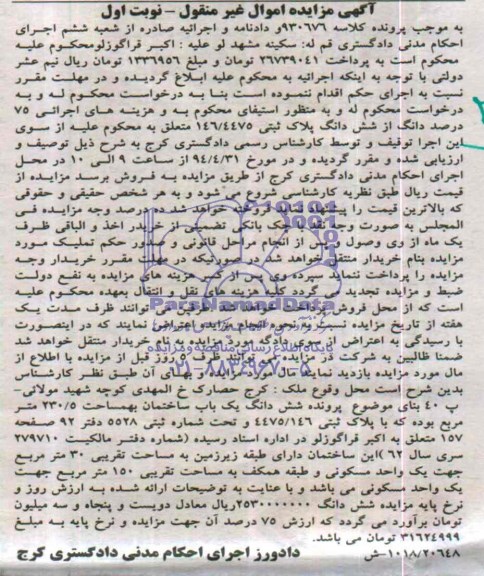 آگهی مزایده اموال غیر منقول - نوبت اول
به موجب پرونده کلاسه ۹۳۰۶۷۶و دادنامه و اجرائیه صادره از شعبه ششم اجرای
احکام مدنی دادگستری قم له: سکینه مشهد لو علیه : اکبر قراگوزلومحکوم علیه
محکوم است به پرداخت ۲۶۷۳۹۰۴۱ تومان و مبلغ ۱۳۳۶۹۵۶ تومان ریال نیم عشر
دولتی با توجه به اینکه اجرائیه به محکوم علیه ابلاغ گردیده و در مهلت مقرر
نسبت به اجرای حکم اقدام ننموده است بنا به درخواست محکوم له و به
درخواست محکوم له و به منظور استیفای محکوم به و هزینه های اجرائی ۷۵
درصد دانگ از شش دانگ پلاک ثبتی ۱۴۶/۴۴۷۵ متعلق به محکوم علیه از سوی
این اجرا توقیف و توسط کارشناس رسمی دادگستری کرج به شرح ذیل توصیف و
ارزیابی شده و مقرر گردیده و در مورخ ۹۴/۴/۳۱ از ساعت ۹ الی ۱۰ در محل
اجرای احکام مدنی دادگستری کرج از طریق مزایده به فروش برسد مزایده از
قیمت ریال طبق نظریه کارشناسی شروع می شود و به هر شخص حقیقی و حقوقی
که بالاترین قیمت را پیشنهاد نماید فروخته خواهد شد ده درصد وجه مزایده فی
المجلس به صورت وجه نقد یا چک بانکی تضمینی از خریدار اخذ و الباقی ظرف
یک ماه از وی وصول و پس از انجام مراحل قانونی و صدور حکم تملیک مورد
مزایده بنام خریدار منتقل خواهد شد در صورتیکه در مهلت مقرر خریدار وجه
مزایده را پرداخت ننماید سپرده وی پس از کسر هزینه های مزایده به نفع دولت
ضبط و مزایده تجدید می گردد کلیه هزینه های نقل و انتقال بعهده محکوم علیه
است که از محل فروش پرداخت خواهد شد طرفین می توانند ظرف مدت یک
هفته از تاریخ مزایده نسبت به نحوه انجام مزایده اعتراض نمایند که در اینصورت
با رسیدگی به اعتراض از سوی دادگاه مورد مزایده به نام خریدار منتقل خواهد شد
ضمنا طالبین به شرکت در مزایده می توانند ظرف ۵ روز قبل از مزایده با اطلاع از
مال مورد مزایده بازدید نمایند مال مورد مزایده و بهای آن طبق نظر کارشناس
بدین شرح است محل وقوع ملک : کرج حصارک خ المهدی کوچه شهید مولائی-
پ ۴۰ بنای موضوع پرونده شش دانگ یک باب ساختمان بهمساحت ۲۳۰/۵ متر
مربع بوده که با پلاک ثبتی ۴۴۷۵/۱۴۶ و تحت شماره ثبتی ۵۵۲۸ دفتر ۹۲ صفحه
۱۵۷ متعلق به اکبر قراگوزلو در اداره اسناد رسیده (شماره دفتر مالکیت ۲۷۹۷۱۰
سری سال ۶۲ )این ساختمان دارای طبقه زیرزمین به مساحت تقریبی ۳۰ متر مربع
جهت یک واحد مسکونی و طبقه همکف به مساحت تقریبی ۱۵۰ متر مربع جهت
یک واحد مسکونی می باشد و با عنایت به توضیحات ارائه شده به ارزش روز و
نرخ پایه مزایده شش دانگ ۲۵۳۰۰۰۰۰۰۰ریال معادل دویست و پنجاه و سه میلیون
تومان برآورد می گردد که ارزش ۷۵ درصد آن جهت مزایده و نرخ پایه به مبلغ
۳۱۶۲۴۹۹۹ تومان می باشد.
۱۰۱۸/۲۰۶۴۸-ش دادورز اجرای احکام مدنی دادگستری کرج
ParsNamadData
پایگاه اطلاع رسانی مناقصه و مزایده
۰۲۱-۸۸۳۴۹۶۷۰-۵